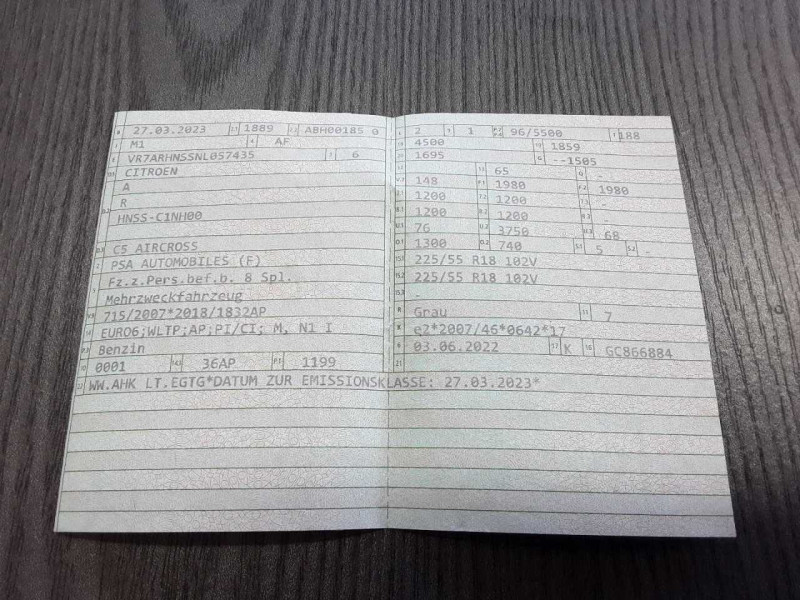 27.03.2023 1889 ABH00185 0
M1 AF
VR7ARHNSSNL057435 6
CITROEN
A
R
HNSS-C1NH00
C5 AIRCROSS
PSA AUTOMOBILES (F)
Fz.z.Pers.bef.b. 8 Spl.
Mehrzweckfahrzeug
715/2007*2018/1832AP
EURO6;WLTP;AP;PI/CI; M, N1 I
Benzin
0001 36AP 1199
WW.AHK LT.EGTG*DATUM ZUR EMISSIONSKLASSE: 27.03.2023*
2 1 96/5500 188
4500 1859
1695 --1505
65 -
148 1980 1980
1200 1200 -
1200 1200 -
76 3750 68
1300 740 5 -
225/55 R18 102V
225/55 R18 102V
-
Grau 7
e2*2007/46*0642*17
03.06.2022 K GC866884